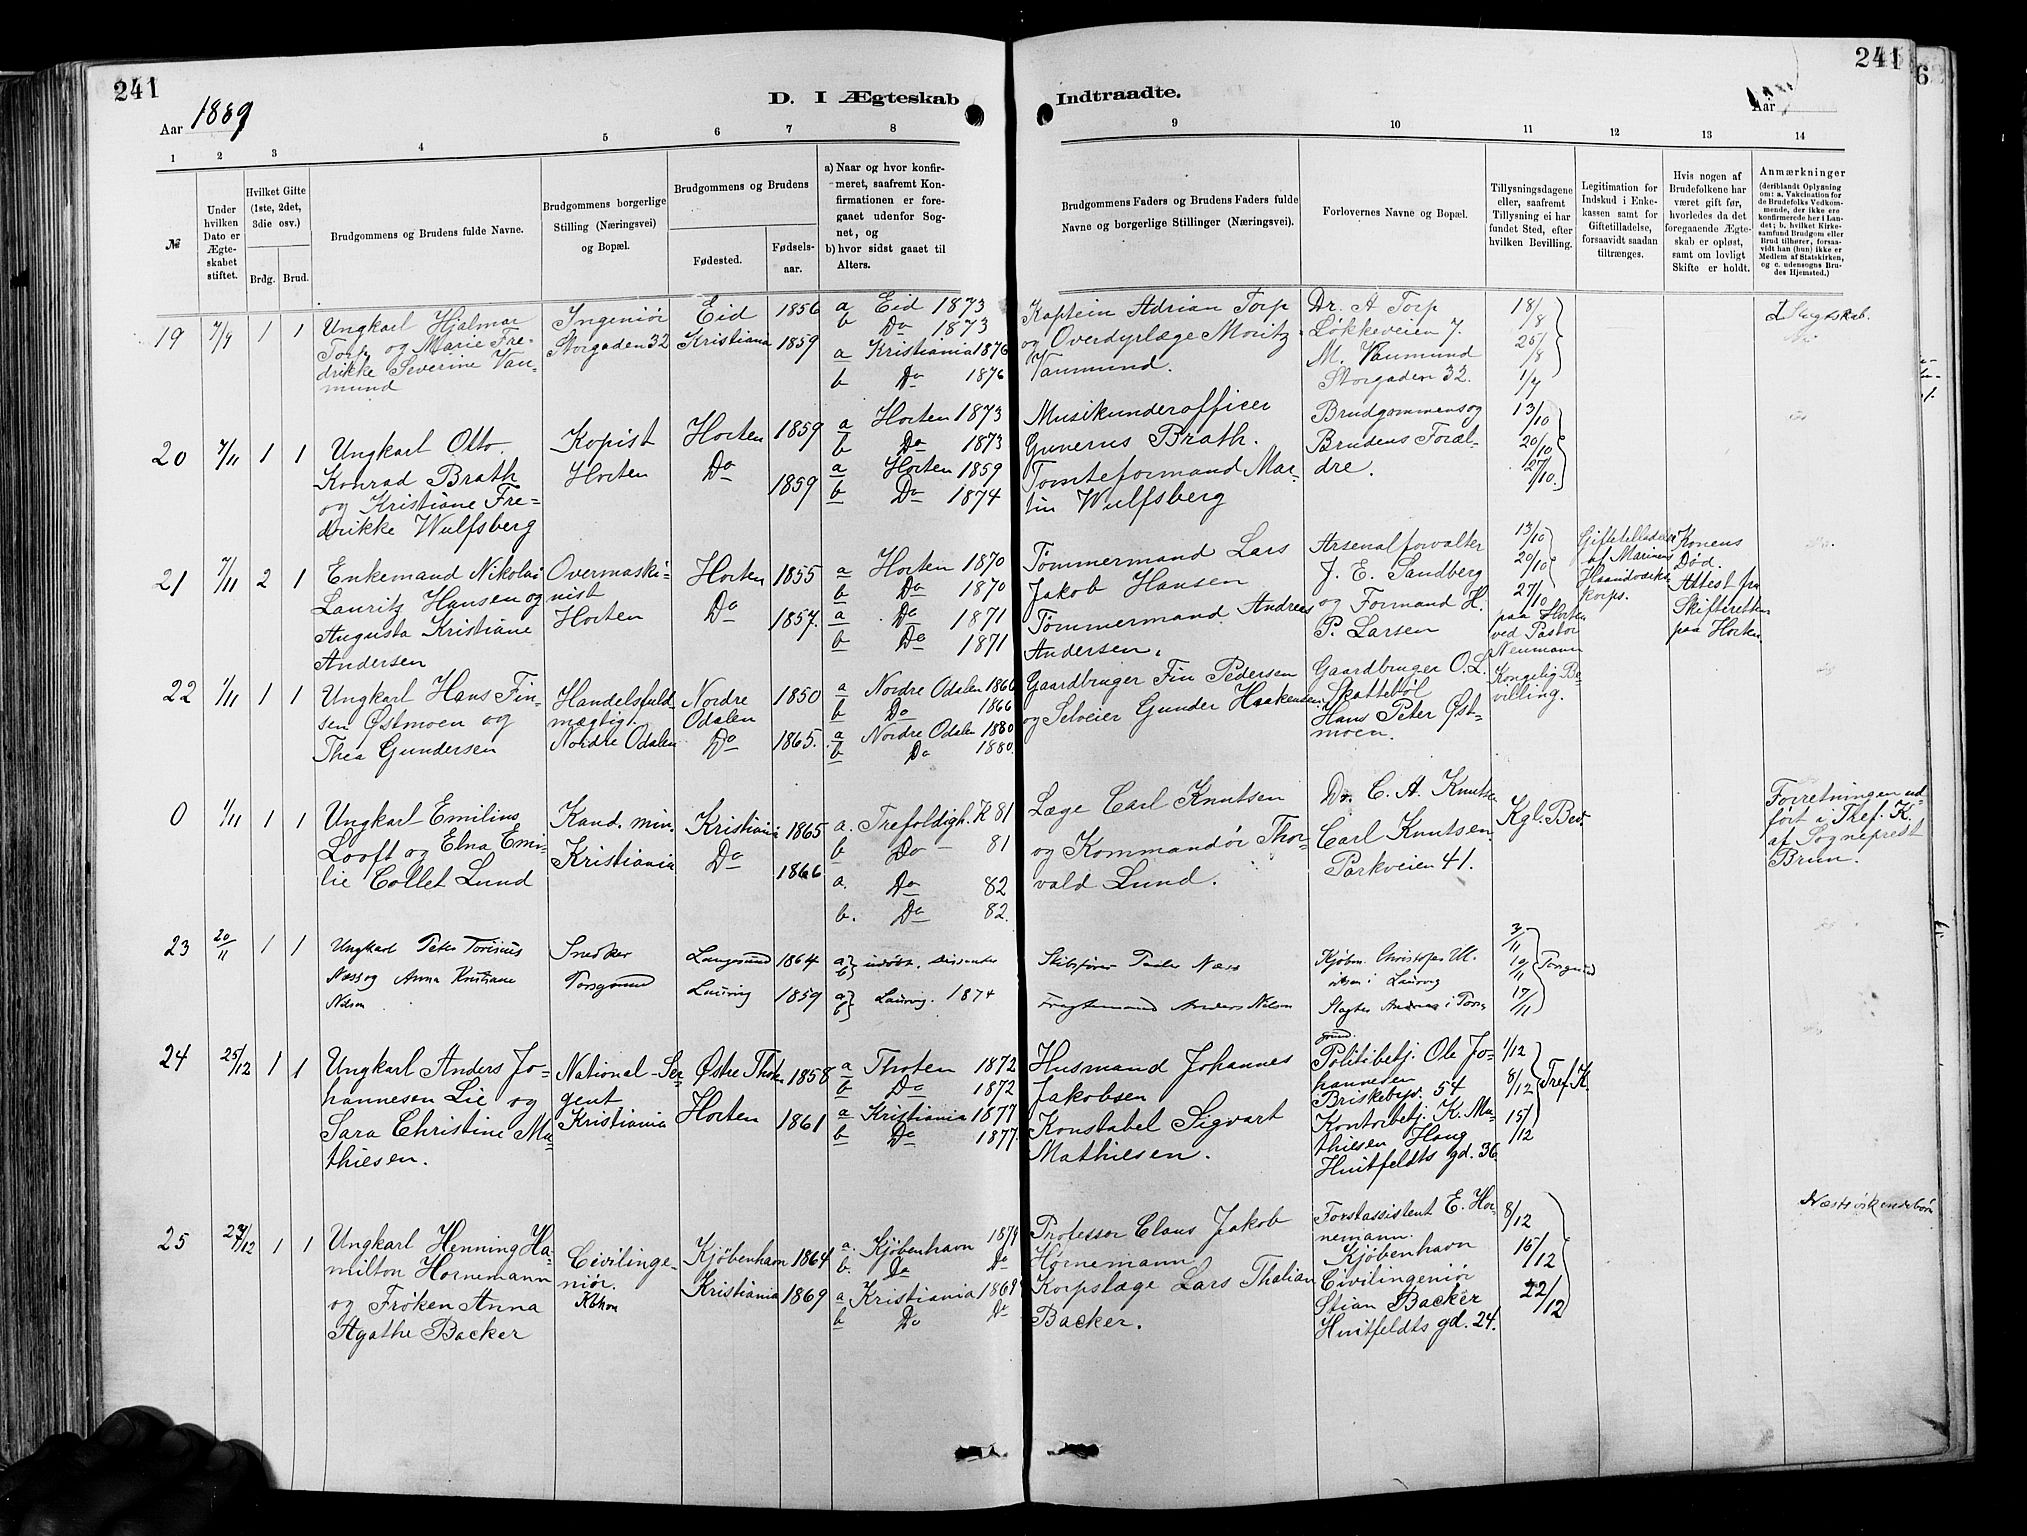 241
Aar 1889
D. I Ægteskab
Indtraadte.
241
Aar
6
1 2 3 4 5 6 7 8 9 10 11 12 13 14
№
Under
hvilken
Dato er
Ægte-
skabet
stiftet.
Hvilket Gifte
(1ste, 2det,
3die osv.)
Brdg. Brud.
Brudgommens og Brudens fulde Navne.
Brudgommens borgerlige
Stilling (Næringsvei)
og Bopæl.
Brudgommens og Brudens
Fødested.
Fødsels-
aar.
a) Naar og hvor konfir-
meret, saafremt Kon-
firmationen er fore-
gaaet udenfor Sog-
net, og
b) hvor sidst gaaet til
Alters.
Brudgommens Faders og Brudens Faders fulde
Navne og borgerlige Stillinger (Næringsvei).
Forlovernes Navne og Bopæl.
Tillysningsdagene
eller, saafremt
Tillysning ei har
fundet Sted, efter
hvilken Bevilling.
Legitimation for
Indskud i Enke-
kassen samt for
Giftetilladelse,
forsaavidt saadan
tiltrænges.
Hvis nogen af
Brudefolkene har
været gift før,
hvorledes da det
foregaaende Ægte-
skab er opløst,
samt om lovligt
Skifte er holdt.
Anmærkninger
(deriblandt Oplysning
om: a. Vakcination for
de Brudefolks Vedkom-
mende, der ikke ere
konfirmerede her i Lan-
det; b, hvilket Kirke-
samfund Brudgom eller
Brud tilhører, forsaa-
vidt han (hun) ikke er
Medlem af Statskirken,
og c. udensogns Bru-
des Hjemsted.)
19
1 1
Ungkarl Hjalmar
Torp og Marie Fre-
drikke Severine Van-
mund
Ingeniør
Storgaden 32
Eid
Kristiania
1856
1859
a Eid 1873
b Do 1873
a Kristiania 1876
b Do 1876
Kaptein Adrian Torp
og Overdyrlæge Moritz
Vanmund.
Dr. A Torp
Løkkeveien 7.
M. Vanmund
Storgaden 32.
18/8
25/8
Slegtskab.
20
7/11
1 1
Ungkarl Otto
Konrad Brath
og Kristiane Fre-
drikke Wulfsberg
Kopist
Horten
Horten
Do
1859
1859
a Horten 1873
b Do 1873
a Horten 1859
b Do 1874
Musikunderofficer
Gunerus Brath.
Tomteformand Mar-
tin Wulfsberg
Brudgommens og
Brudens Foræl-
dre.
13/10
20/10
27/10.
21
7/11
2 1
Enkemand Nikolai
Lauritz Hansen og
Augusta Kristiane
Andersen
Overmaski-
nist
Horten
Horten
Do
1855
1857.
a Horten 1870
b Do 1870
a Do 1871
b Do 1871
Tømmermand Lars
Jakob Hansen
Tømmermand Andreas
Andersen.
Arsenalforvalter
J. E. Sandberg
og Formand H.
P. Larsen
13/10
20/10
27/10
paa Horten
ved Pastor
Neumann
Giftetilladelse
af Marinens
Haandværks-
korps.
Konens
Død.
Attest fra
Skifteretten
paa Horten
22
1/11
1 1
Ungkarl Hans Fin-
sen Østmoen og
Thea Gundersen
Handelsfuld-
mægtig.
Nordre Odalen
Nordre
Odalen
Do
1850
1865.
a Nordre Odalen 1866
b Do 1866
a Nordre Odalen 1880
b Do 1880.
Gaardbruger Fin Pedersen
og Selveier Gunder Haakensen
Gaardbruger O. L.
Skattebøl
Hans Peter Øst-
moen.
Kongelig Be-
villing.
0
1/11
1 1
Ungkarl Emilius
Looft og Elna Emi-
lie Collet Lund
Kand. min.
Kristiania
Kristiania
Do
1865
1866
a. Trefoldigh. K 81
b Do 81
a. Do 82
b. Do 82.
Læge Carl Knutsen
og Kommandør Thor-
vald Lund.
Dr. C. A. Knutsen
Carl Knutsen
Parkveien 41.
Kgl. Bev.
Forretningen ud-
ført i Tref. K.
af Sogneprest
Brun.
23
20/11
1 1
Ungkarl Peter
Næss og Anna Kristiane
Nilsen
Snedker
Porsgrund
Langesund
Laurvig
1864
1859
a b udøbt. Dissenter
a b Laurvig. 1874
Skibsfører Peder Næss
Fragtemand Anders Nilsen
Kjøbm. Christopher
i Laurvig
Slagter i Pors-
grund.
3/11
10/11
17/11
Porsgrund
24
25/12
1 1
Ungkarl Anders Jo-
hannesen Lie og
Sara Christine Ma-
thiesen.
National-Ser-
gent
Kristiania
Østre Thoten
Horten
1858
1861
a Thoten 1872
b Do 1872
a Kristiania 1877
b Do 1877.
Husmand Johannes
Jakobsen
Konstabel Sigvart
Mathiesen.
Politibetj. Ole Jo-
hannesen
Briskebygv. 54
Kontorbetj. K. Ma-
thiesen Haug
Huitfeldts gd. 36.
1/12
8/12
15/12
Tref. K.
25
27/12
1 1
Ungkarl Henning Ha-
milton Hornemann
og Frøken Anna
Agathe Backer
Civilinge-
niør.
Kbhvn
Kjøbenhavn
Kristiania
1864
1869
a. Kjøbenhavn 1879
b. Do Do
a Kristiania
b Do Do
Professor Claus Jakob
Hornemann
Korpslæge Lars Thalian
Backer.
Forstassistent E. Hor-
nemann.
Kjøbenhavn
Civilingeniør
Stian Backer
Huitfeldts gd. 24.
8/12
15/12
22/12
Næstsøskendebørn